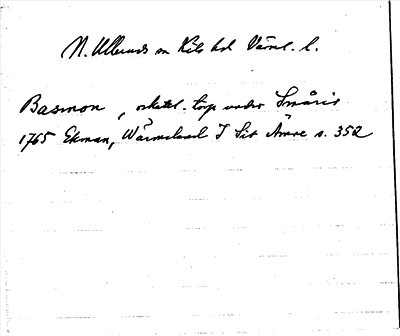 N. Ullerud sn Kils hd Värml. l.
Basmon, oskatt. torp under Småris
1765 Ekman, Wärmeland I Sitt Ämne s. 352